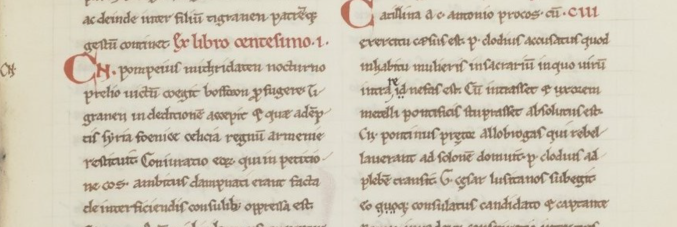 ac deinde inter filiũ tigranen patrẽq;
gestũ continet. Ex libro centesimo .i.
Cñ
CN. pompeius mithridaten nocturno
prelio uictũ coegit bosforon ꝓfugere. Ti
granen in deditionẽ accepit & que adẽp
tis syria foenice celicia regnũ armenie
restituit. Coniuratio eoꝝ qui in peticio
ne cos. ambitus dampnati erant facta
de interficiendis consulib; oppressa est
Catilina a .c. antonio procos. cũ .CIII
exercitu cęsus est. p. clodius accusatus quod
in habitu mulieris in sacrariũ in quo uirũ
intrare id nefas est. Cũ intrasset & uxorem
metelli pontificis stuprasset absolutus est.
Cñ pontinus pretor allobrogas qui rebel
lauerant ad solonẽ domuit. p. clodius ad
plebẽ transiit. G. cęsar lusitanos subegit
eo quoq; consulatus candidato & captante